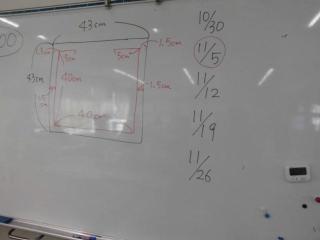 43cm
10/30
00
1.5cm
11/5
3cm
3cm
43cm
40cm
1.5cm
11/12
40cm
11/19
11/26